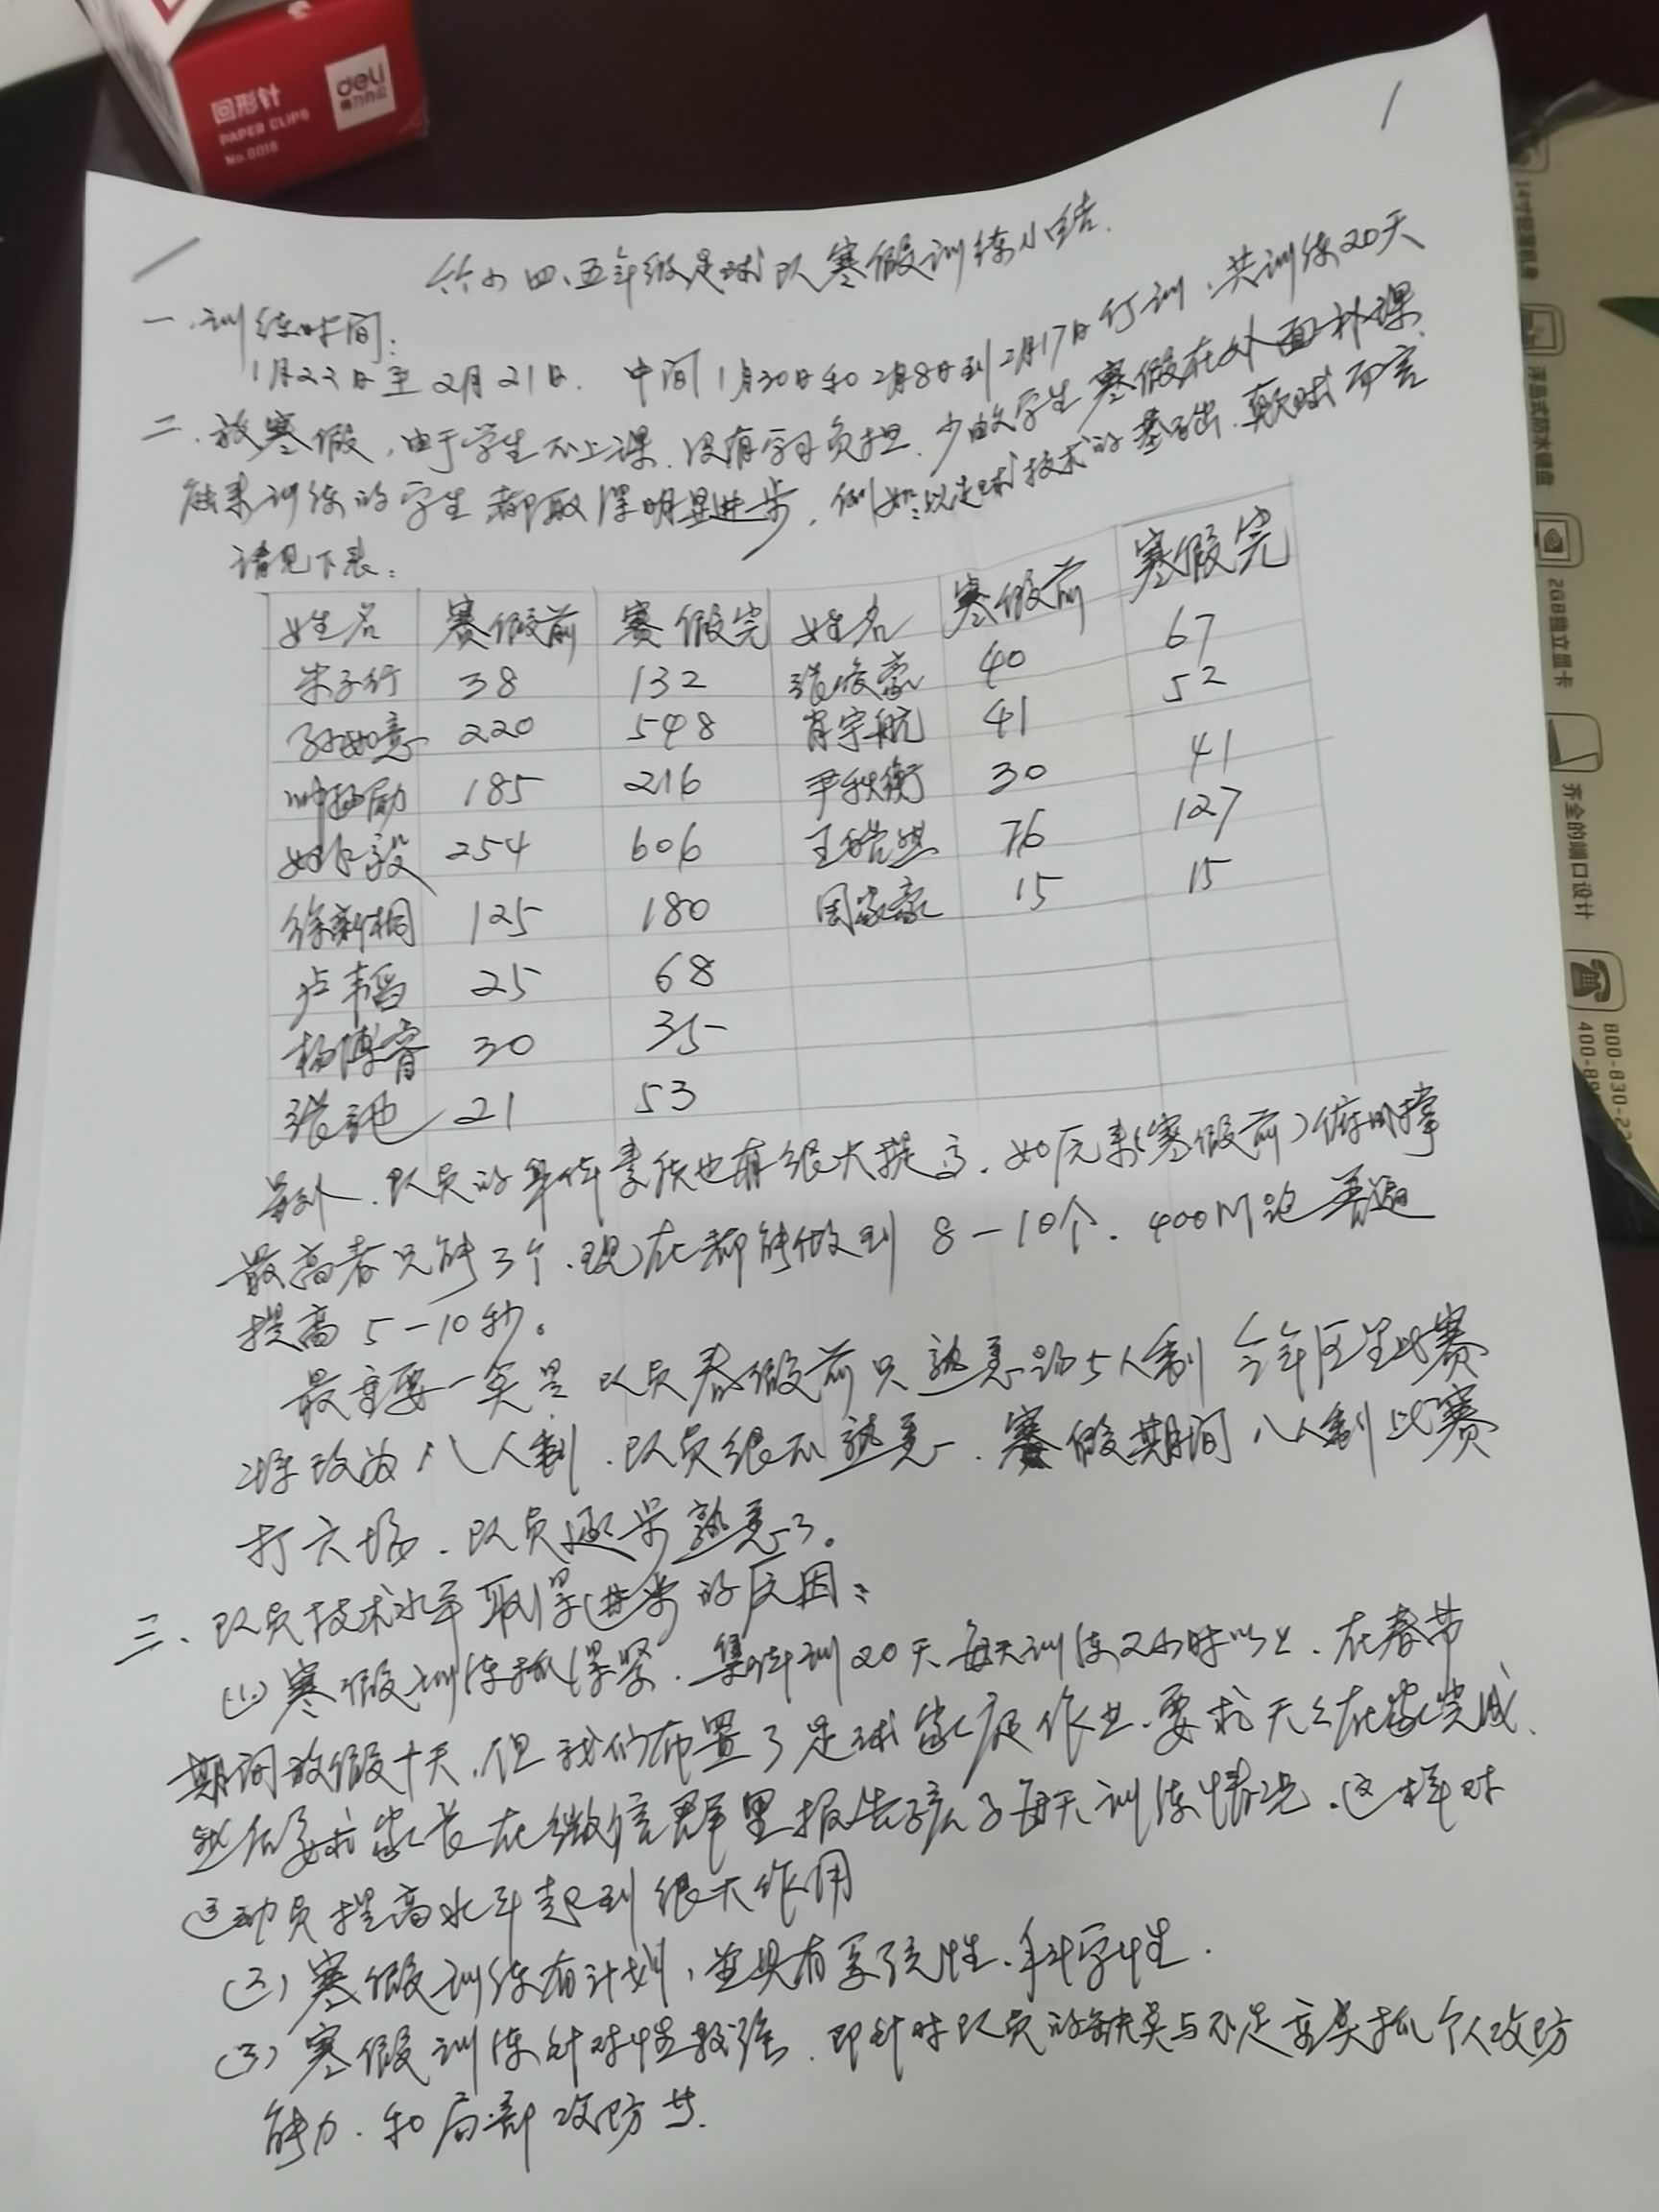 deli
得力办公
回形针
PAPER CLIPS
No.0018
1
竹小四、五年级足球队寒假训练小结.
一、训练时间：
1月22日至2月21日. 中间1月30日和2月8日到2月17日停训、共训练20天
二、放寒假,由于学生不上课.没有学习负担.少数学生寒假在外面补课.
能来训练的学生都取得明显进步,例如:以足球技术的基础.颠球而言
请见下表:
姓名 寒假前 寒假完 姓名 寒假前 寒假完
朱子行 38 132 张俊豪 40 67
孙如意 220 548 肖宇航 41 52
185 216 尹秋衡 30 41
254 606 王皓然 76 127
徐新桐 125 180 周家豪 15 15
卢韦韬 25 68
杨博睿 30 35
张弛 21 53
另外、队员的身体素质也有很大提高.如原来(寒假前)俯卧撑
最高者只能3个.现在都能做到8-10个.400M跑普遍
提高5-10秒。
最重要一点是队员寒假前只熟悉踢5人制 今年区里比赛
将改为八人制.队员很不熟悉.寒假期间八人制比赛
打六场.队员逐步熟悉了。
三、队员技术水平取得进步的原因:
(1)寒假训练抓得紧.集体训20天每天训练2小时以上.在春节
期间放假十天,但我们布置了足球家庭作业.要求天天在家完成、
然后要求家长在微信群里报告孩子每天训练情况.这样对
运动员提高水平起到很大作用
(2)寒假训练有计划,并具有系统性.科学性.
(3)寒假训练针对性较强.即针对队员的缺点与不足重点抓个人攻防
能力.和局部攻防等.
14寸轻薄机身
浮岛式防水键盘
2GB独立显卡
齐全的端口设计
800-830-2
400-8